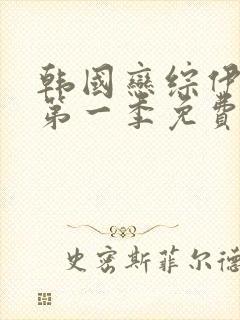 韩國戀综伊
第一季免費
史密斯菲尔德